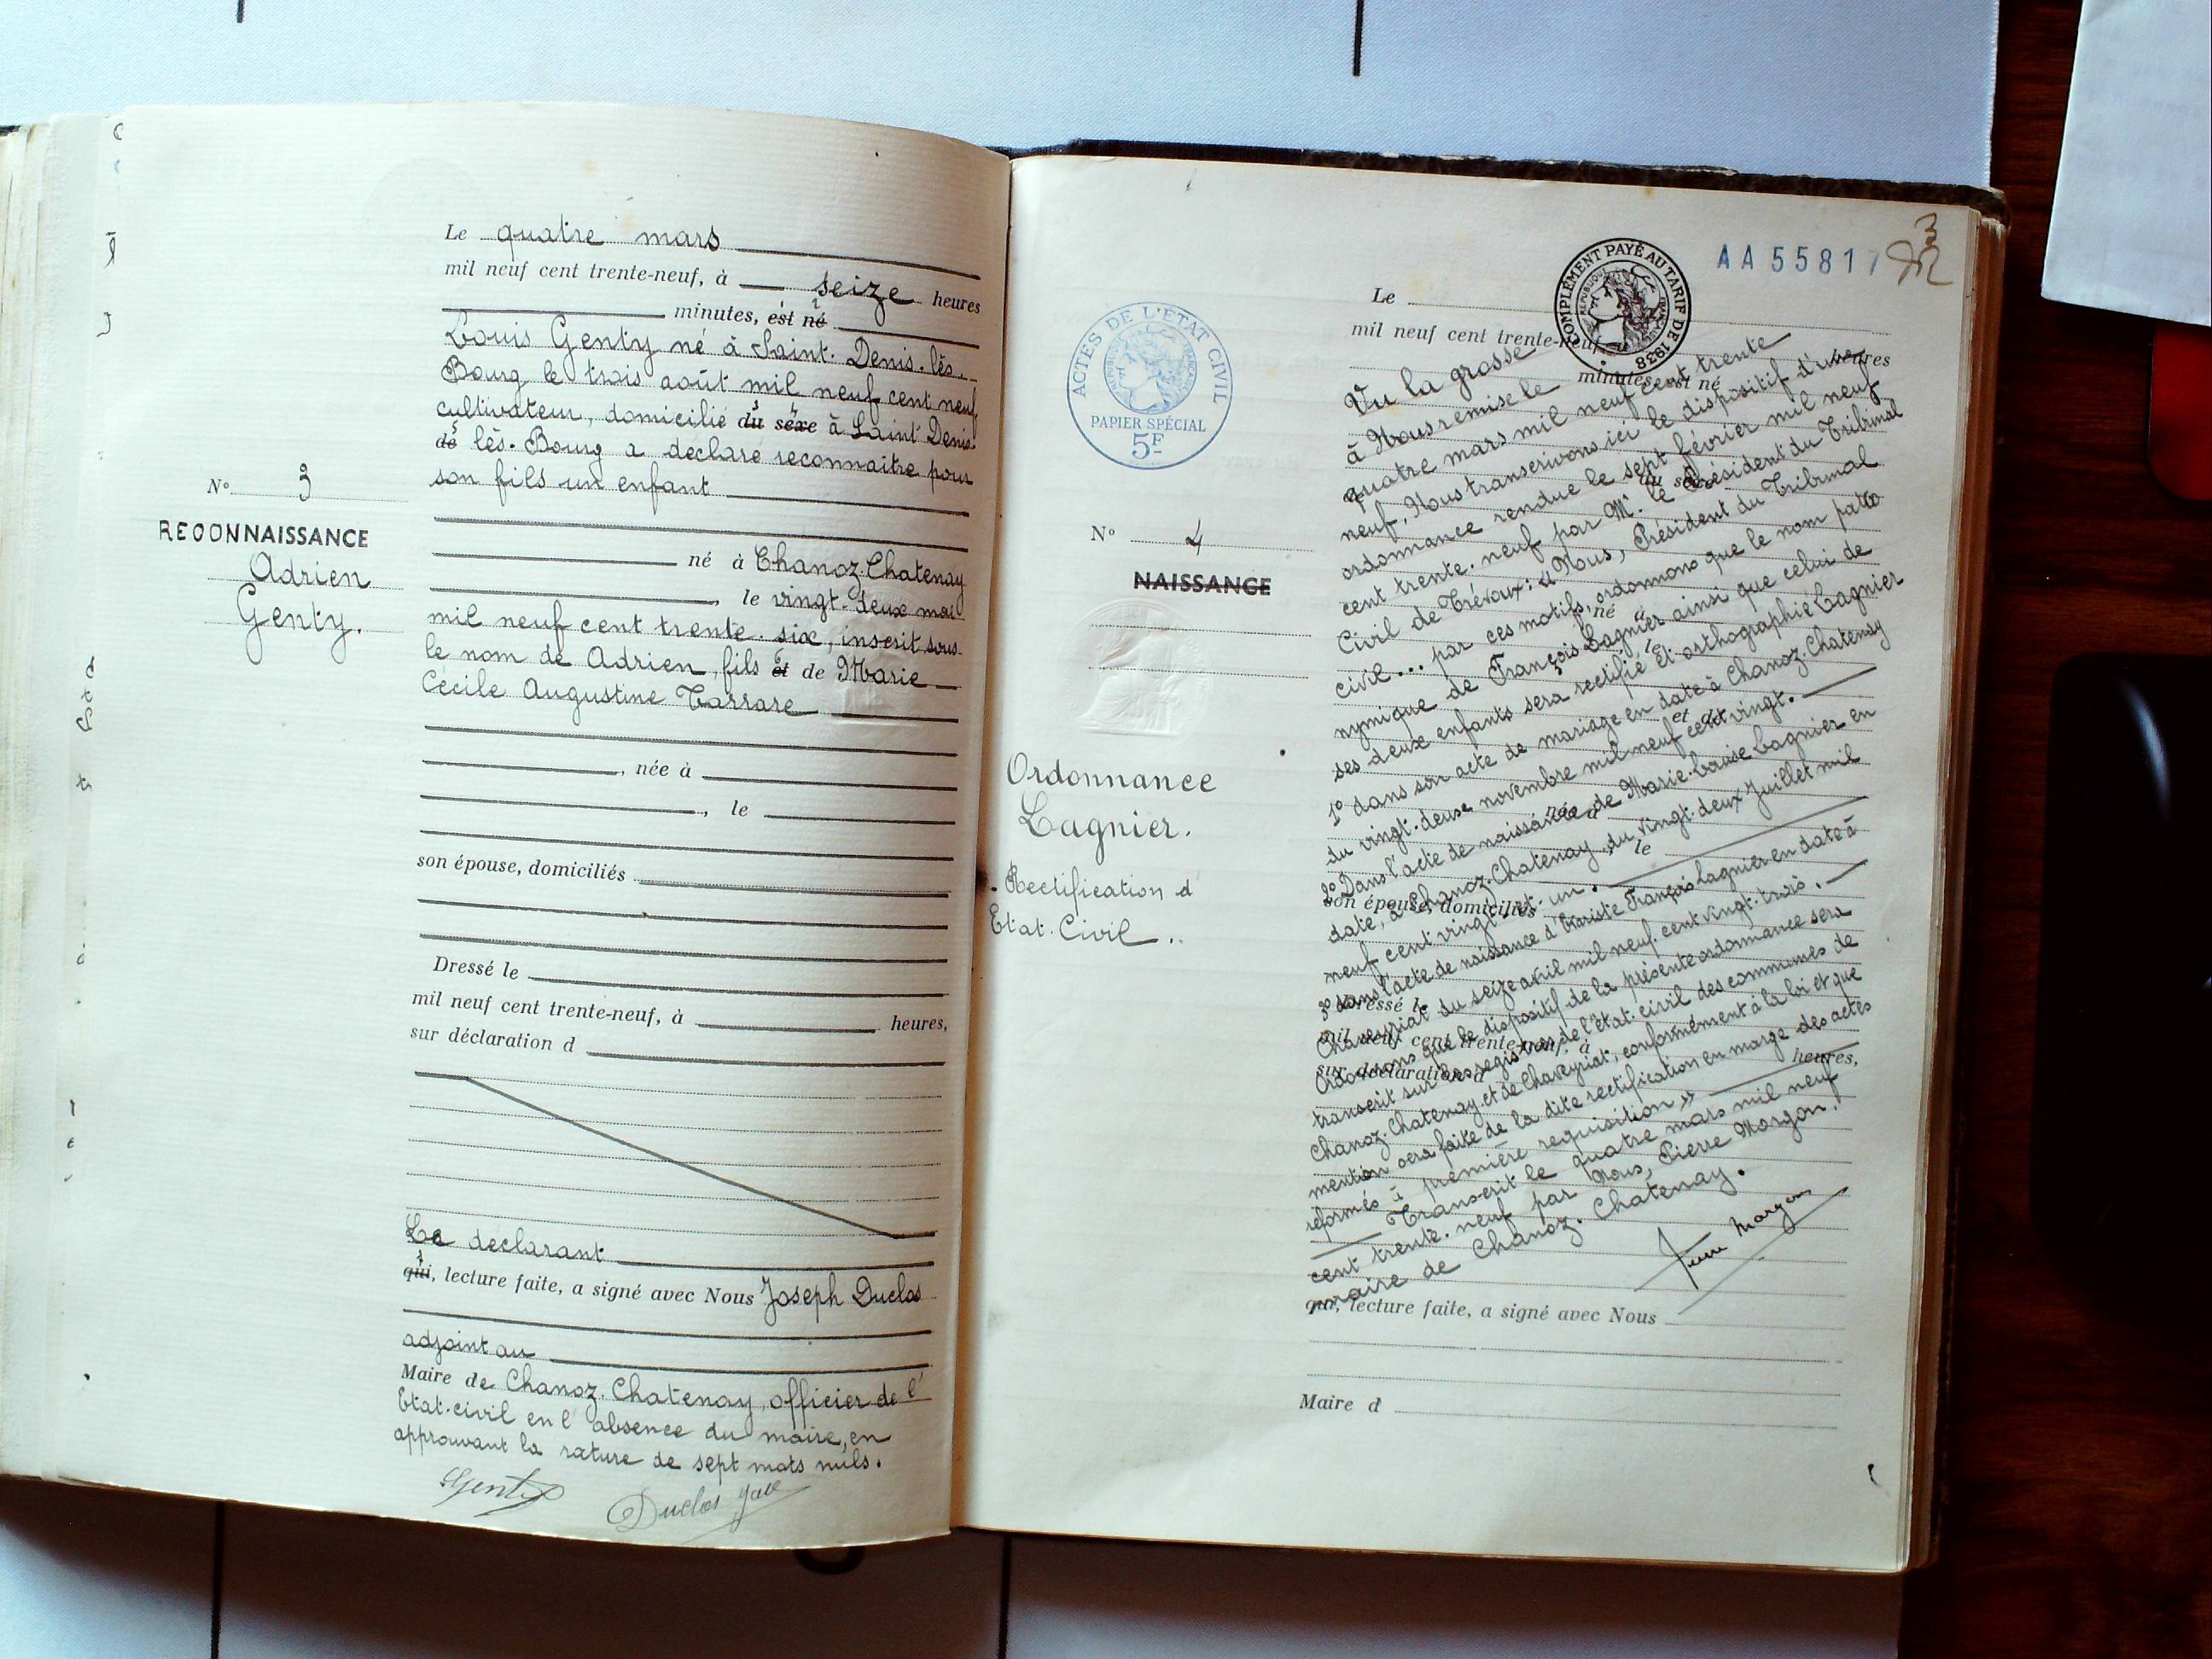 Le quatre mars
mil neuf cent trente-neuf, à seize heures
minutes, est né
Louis Genty né à Saint-Denis-lès-
Bourg le trois août mil neuf cent neuf
cultivateur, domicilié du sexe à Saint Denis-
de lès-Bourg a declaré reconnaitre pour
son fils un enfant
N° 3
RECONNAISSANCE
Adrien
Genty.
né à Chanoz-Chatenay
, le vingt-deux mai
mil neuf cent trente-six, inscrit sous
le nom de Adrien, fils et de Marie
Cécile Augustine Tarrare
, née à
, le
son épouse, domiciliés
Dressé le
mil neuf cent trente-neuf, à heures,
sur déclaration d
Le declarant
qui, lecture faite, a signé avec Nous Joseph Duclos
adjoint au
Maire de Chanoz-Chatenay, officier de l'
Etat-civil en l'absence du maire, en
approuvant la rature de sept mots nuls.
Genty Duclos
AA 55817
COMPLÉMENT PAYÉ AU TARIF DE 1938
ACTES DE L'ÉTAT CIVIL
PAPIER SPÉCIAL
5F
N° 4
NAISSANCE
Ordonnance
Lagnier.
Rectification d'
Etat-Civil.
Le
mil neuf cent trente-neuf
heures
minutes, est né
Vu la grosse
à Nous remise le
quatre mars mil neuf cent trente
neuf, Nous transcrivons ici le dispositif d'une
ordonnance rendue le sept février mil neuf
cent trente-neuf par Mr. le Président du Tribunal
Civil de Trévoux: "Nous, Président du Tribunal
civil... par ces motifs, ordonnons que le nom patro
nymique de François Lagnier ainsi que celui de
ses deux enfants sera rectifié et orthographié Lagnier
1° dans son acte de mariage en date à Chanoz-Chatenay
du vingt-deux novembre mil neuf cent vingt.
2° Dans l'acte de naissance de Marie-Louise Lagnier en
date, à Chanoz-Chatenay, du vingt-deux Juillet mil
neuf cent vingt-et-un.
3° dans l'acte de naissance d'Evariste François Lagnier en date à
Chaveyriat du seize avril mil neuf-cent vingt-trois.
Ordonnons que le dispositif de la présente ordonnance sera
transcrit sur les registres de l'état-civil des communes de
Chanoz-Chatenay et de Chaveyriat, conformément à la loi et que
mention sera faite de la dite rectification en marge des actes
réformés à première requisition"
Transcrit le quatre mars mil neuf
cent trente-neuf par Nous, Pierre Morgon,
maire de Chanoz-Chatenay.
Pierre Morgon
du sexe
né à
le
et de
née à
, le
son épouse, domiciliés
Dressé le
mil neuf cent trente-neuf, à
heures,
sur déclaration d
qui, lecture faite, a signé avec Nous
Maire d